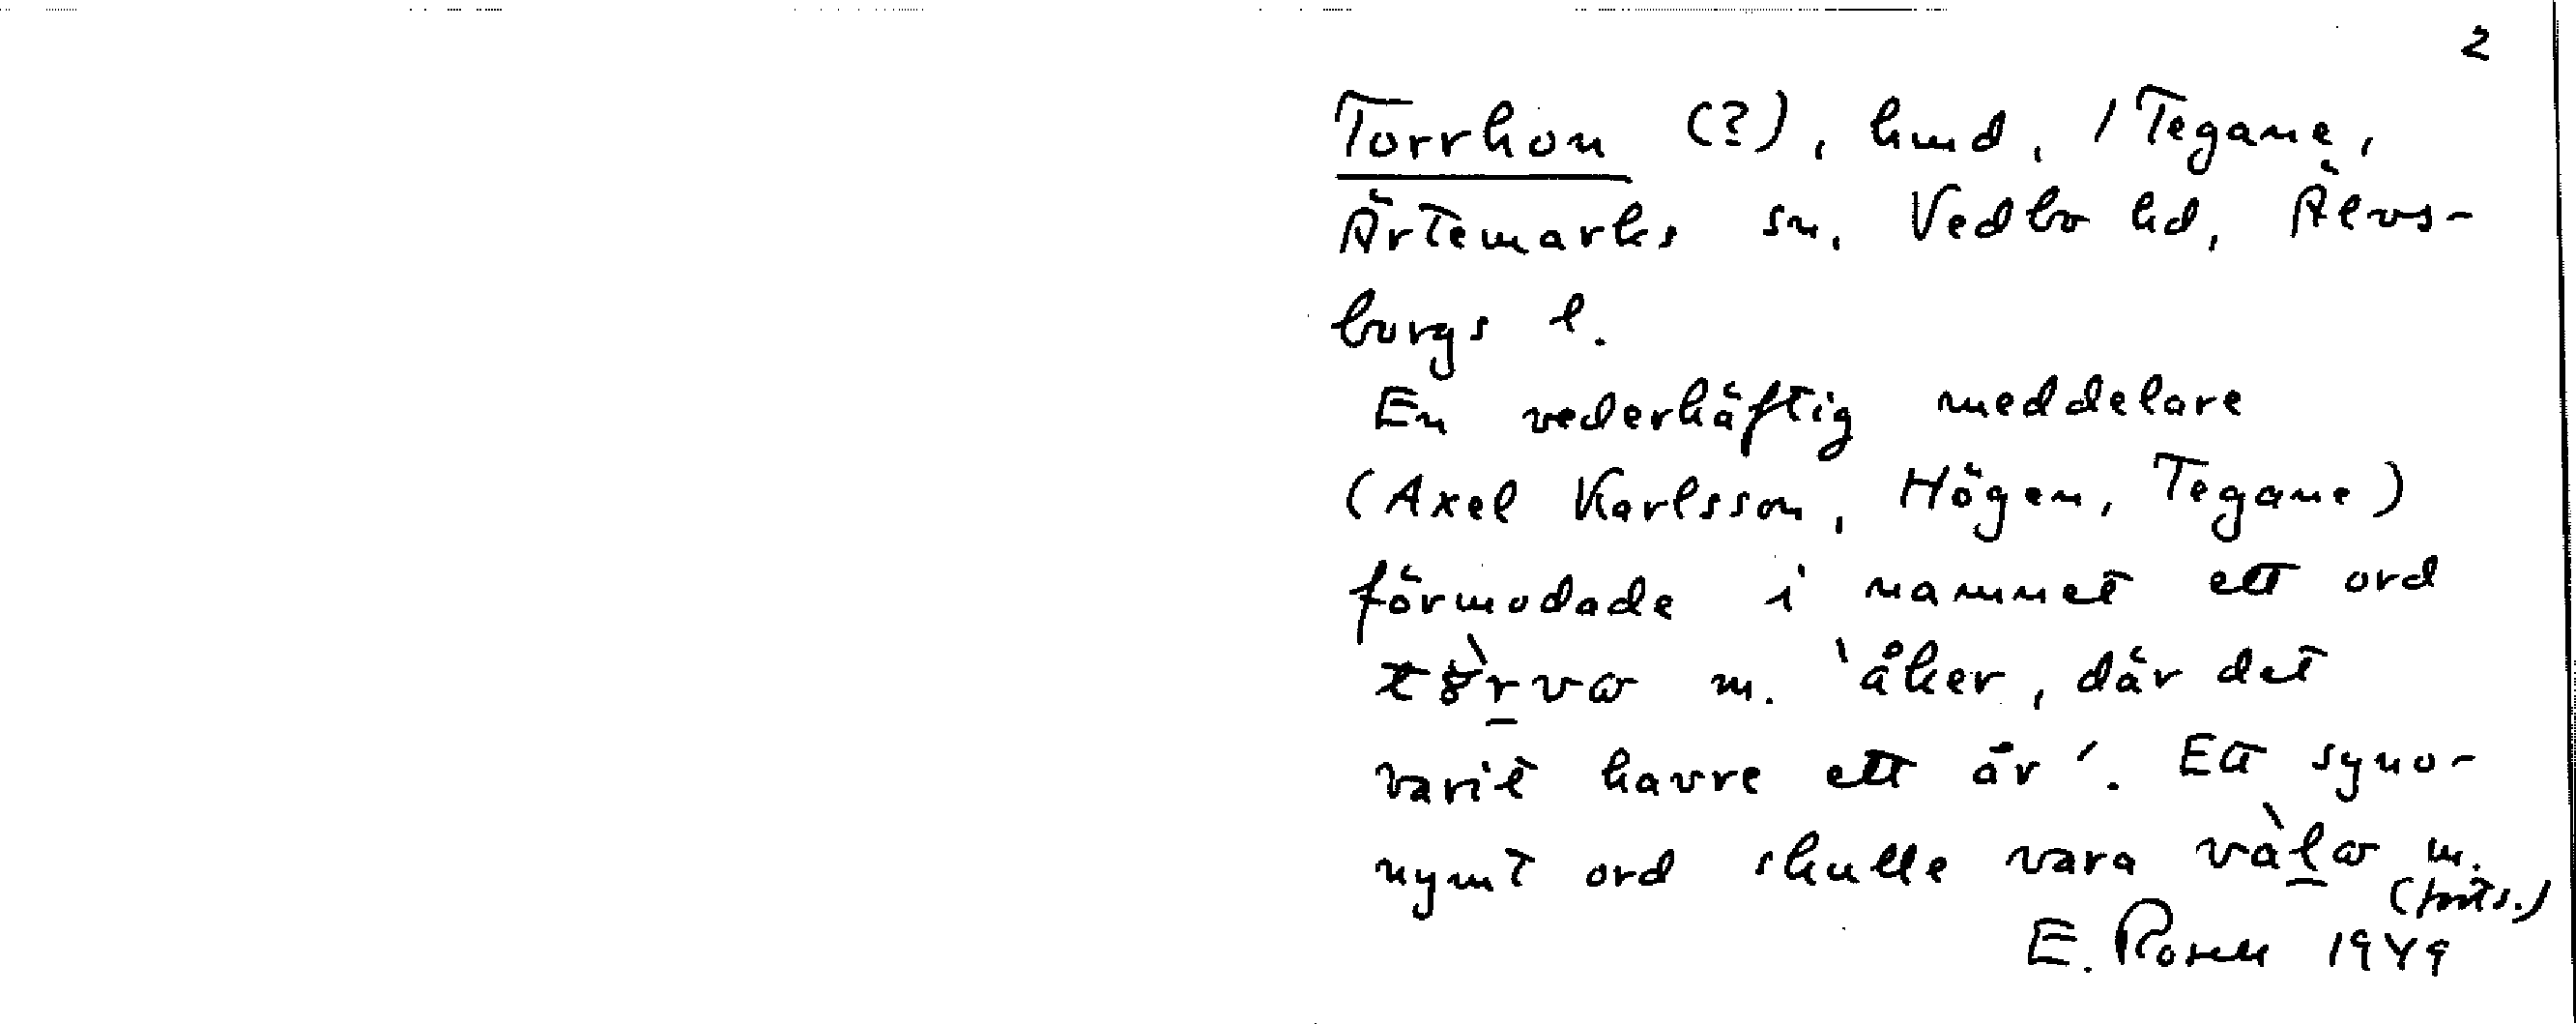 2
Torrkon (?), hmd. 1 Tegane,
Ärtemarks sn. Vedbo hd, Älvs-
borgs l.
En vederhäftig meddelare
(Axel Karlsson, Högen, Tegane)
förmodade i namnet ett ord
m. 'åker, där det
varit havre ett år'. Ett syno-
nymt ord skulle vara m.
(forts.)
E. Rosell 1949